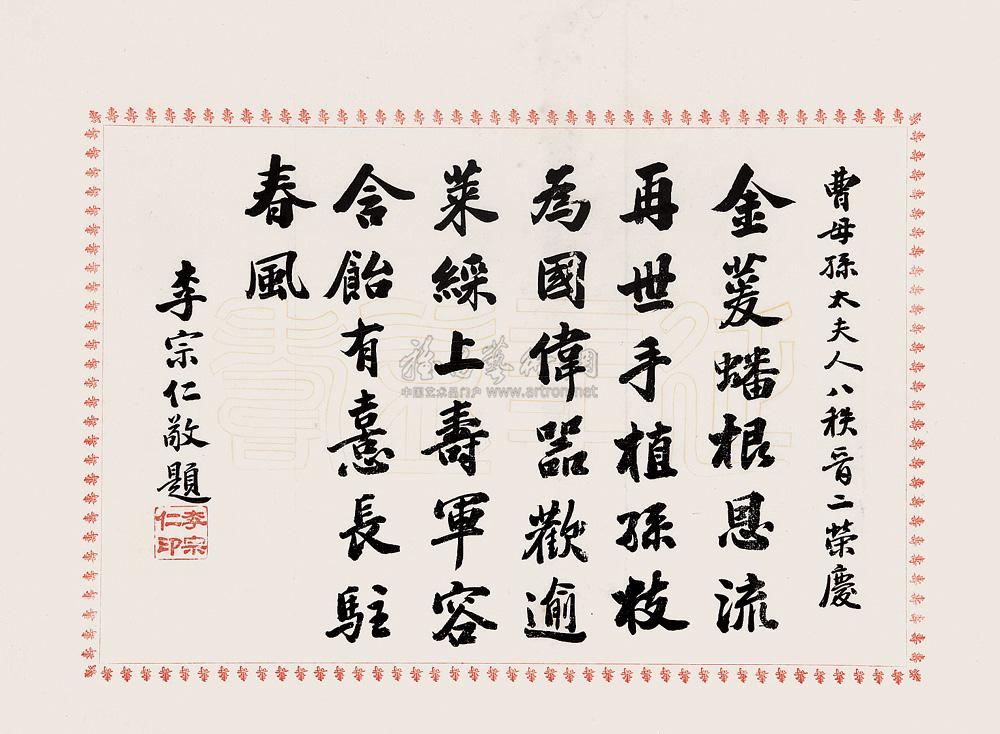 曹母孫太夫人八秩晉二榮慶
金萲蟠根恩流
再世手植孫枝
為國偉器歡逾
萊綵上壽軍容
含飴有憙長駐
春風
李宗仁敬題
李宗
仁印
中国艺术品门户 www.artron.net